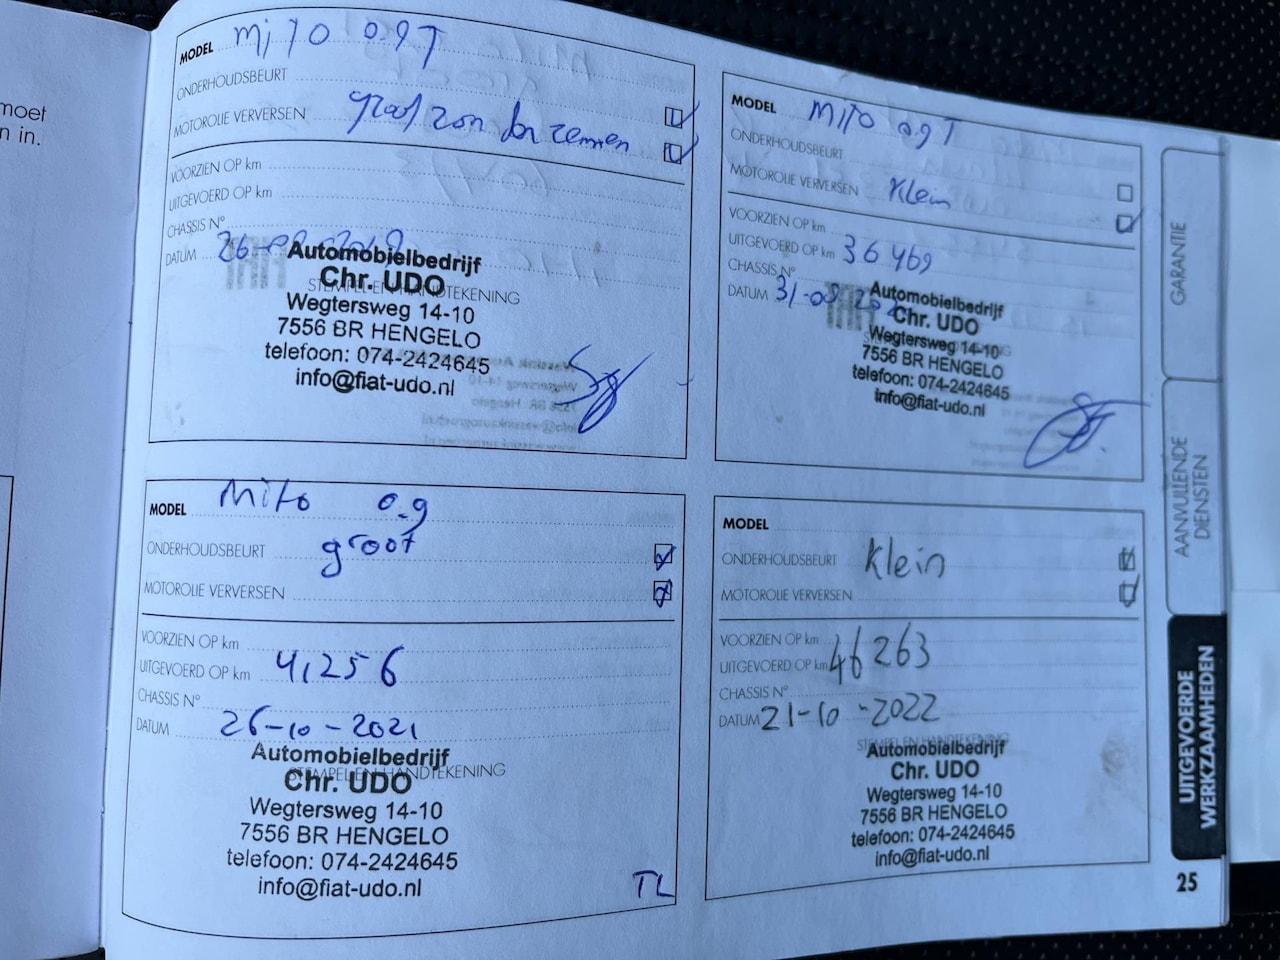 moet
n in.
MODEL MiTO 0.9T
ONDERHOUDSBEURT
MOTOROLIE VERVERSEN
VOORZIEN OP km
UITGEVOERD OP km
CHASSIS N°
DATUM
STEMPEL EN HANDTEKENING
Automobielbedrijf
Chr. UDO
Wegtersweg 14-10
7556 BR HENGELO
telefoon: 074-2424645
info@fiat-udo.nl
MODEL MiTO 0.9T
ONDERHOUDSBEURT
MOTOROLIE VERVERSEN Klein
VOORZIEN OP km
UITGEVOERD OP km 36469
CHASSIS N°
DATUM
Automobielbedrijf
Chr. UDO
Wegtersweg 14-10
7556 BR HENGELO
telefoon: 074-2424645
info@fiat-udo.nl
MODEL Mito 0.9
ONDERHOUDSBEURT groot
MOTOROLIE VERVERSEN
VOORZIEN OP km
UITGEVOERD OP km 41256
CHASSIS N°
DATUM 26-10-2021
STEMPEL EN HANDTEKENING
Automobielbedrijf
Chr. UDO
Wegtersweg 14-10
7556 BR HENGELO
telefoon: 074-2424645
info@fiat-udo.nl
TL
MODEL
ONDERHOUDSBEURT Klein
MOTOROLIE VERVERSEN
VOORZIEN OP km
UITGEVOERD OP km 46263
CHASSIS N°
DATUM 21-10-2022
STEMPEL EN HANDTEKENING
Automobielbedrijf
Chr. UDO
Wegtersweg 14-10
7556 BR HENGELO
telefoon: 074-2424645
info@fiat-udo.nl
GARANTIE
AANVULLENDE
DIENSTEN
UITGEVOERDE
WERKZAAMHEDEN
25